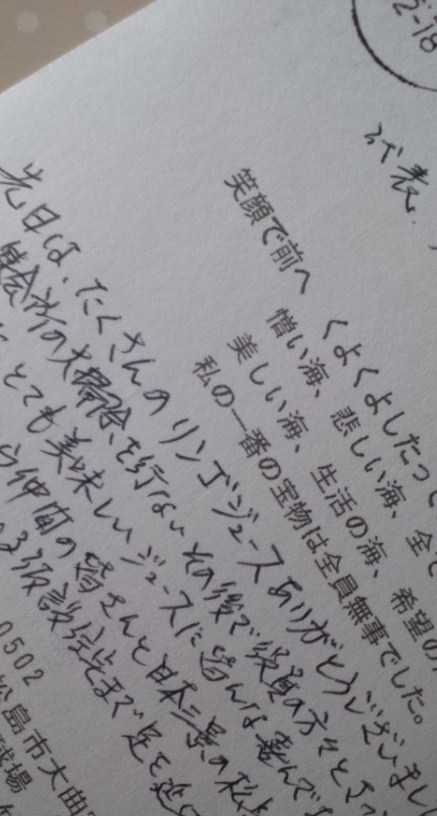 2-18
代表
くよくよしたって
笑顔で前へ 憎い海、悲しい海、全て
美しい海、生活の海、希望の
私の一番の宝物は全員無事でした。
先日は、たくさんのリンゴジュースありがとうございまし
集会所の大掃除を行ない その後で役員の方々と
とても美味しいジュースに皆んな喜んで
仲間の皆さんと日本三景の松島
仮設住宅まで足を延
0502
松島市大曲
球場